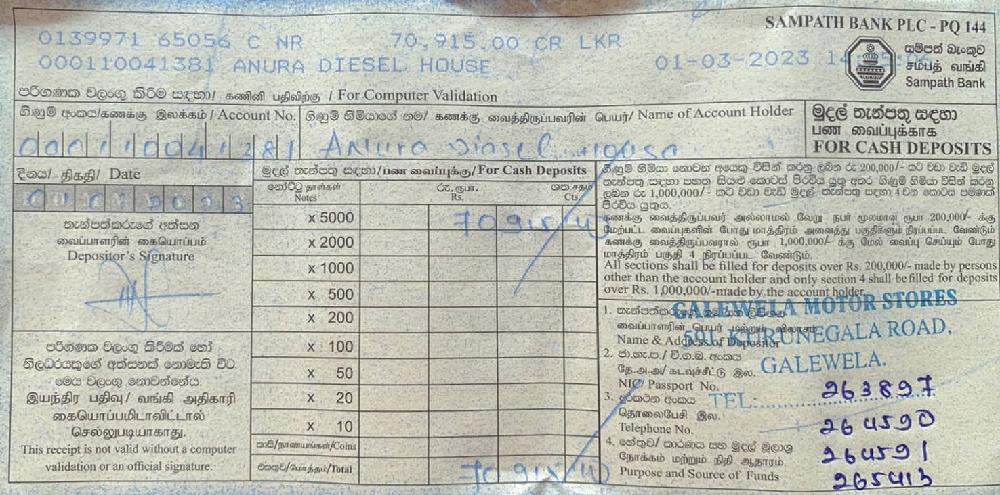 SAMPATH BANK PLC - PQ 144
0139971 65056 C NR 70,915.00 CR LKR
000110041381 ANURA DIESEL HOUSE 01-03-2023 14
සම්පත් බැංකුව
சம்பத் வங்கி
Sampath Bank
පරිගණක වලංගු කිරීම සඳහා / கணினி பதிவிற்கு / For Computer Validation
ගිණුම් අංකය/கணக்கு இலக்கம் / Account No.
ගිණුම් හිමියාගේ නම/ கணக்கு வைத்திருப்பவரின் பெயர்/ Name of Account Holder
මුදල් තැන්පතු සඳහා
பண வைப்புக்காக
FOR CASH DEPOSITS
000110041381 Anura Diesel House
දිනය/ திகதி/ Date
මුදල් තැන්පතු සඳහා/பண வைப்புக்கு/For Cash Deposits
නෝට්ටු தாள்கள் Notes
රු. ரூபா. Rs.
ශත சதம் Cts.
තැන්පත්කරුගේ අත්සන
வைப்பாளரின் கையொப்பம்
Depositor's Signature
x 5000
x 2000
x 1000
x 500
x 200
x 100
x 50
x 20
x 10
කාසි/நாணயங்கள்/Coins
එකතුව/மொத்தம்/Total
පරිගණක වලංගු කිරීමක් හෝ
නිලධරයකුගේ අත්සනක් නොමැති විට
මෙය වලංගු නොවන්නේය.
இயந்திர பதிவு/ வங்கி அதிகாரி
கையொப்பமிடாவிட்டால்
செல்லுபடியாகாது.
This receipt is not valid without a computer
validation or an official signature.
கணக்கு வைத்திருப்பவர் அல்லாமல் வேறு நபர் மூலமாக ரூபா 200,000/- க்கு
மேற்பட்ட வைப்புகளின் போது மாத்திரம் அனைத்து பகுதிகளும் நிரப்பப்பட வேண்டும்
கணக்கு வைத்திருப்பவரால் ரூபா 1,000,000/- க்கு மேல் வைப்பு செய்யும் போது
மாத்திரம் பகுதி 4 நிரப்பப்பட வேண்டும்.
All sections shall be filled for deposits over Rs. 200,000/- made by persons
other than the account holder and only section 4 shall be filled for deposits
over Rs. 1,000,000/-made by the account holder.
GALEWELA MOTOR STORES
KURUNEGALA ROAD,
GALEWELA.
1.
Name & Address of Depositor
2. ජා.හැ.ප. / වි.ග.බ. අංකය
தே.அ.அ/ கடவுச்சீட்டு இல.
NIC/ Passport No.
TEL. 263897
3. දුරකථන අංකය
தொலைபேசி இல.
Telephone No.
264590
4. හේතුව/ කාරණය සහ මුදල් මූලාශ්‍ර
நோக்கம் மற்றும் நிதி ஆதாரம்
Purpose and Source of Funds
264591
265413